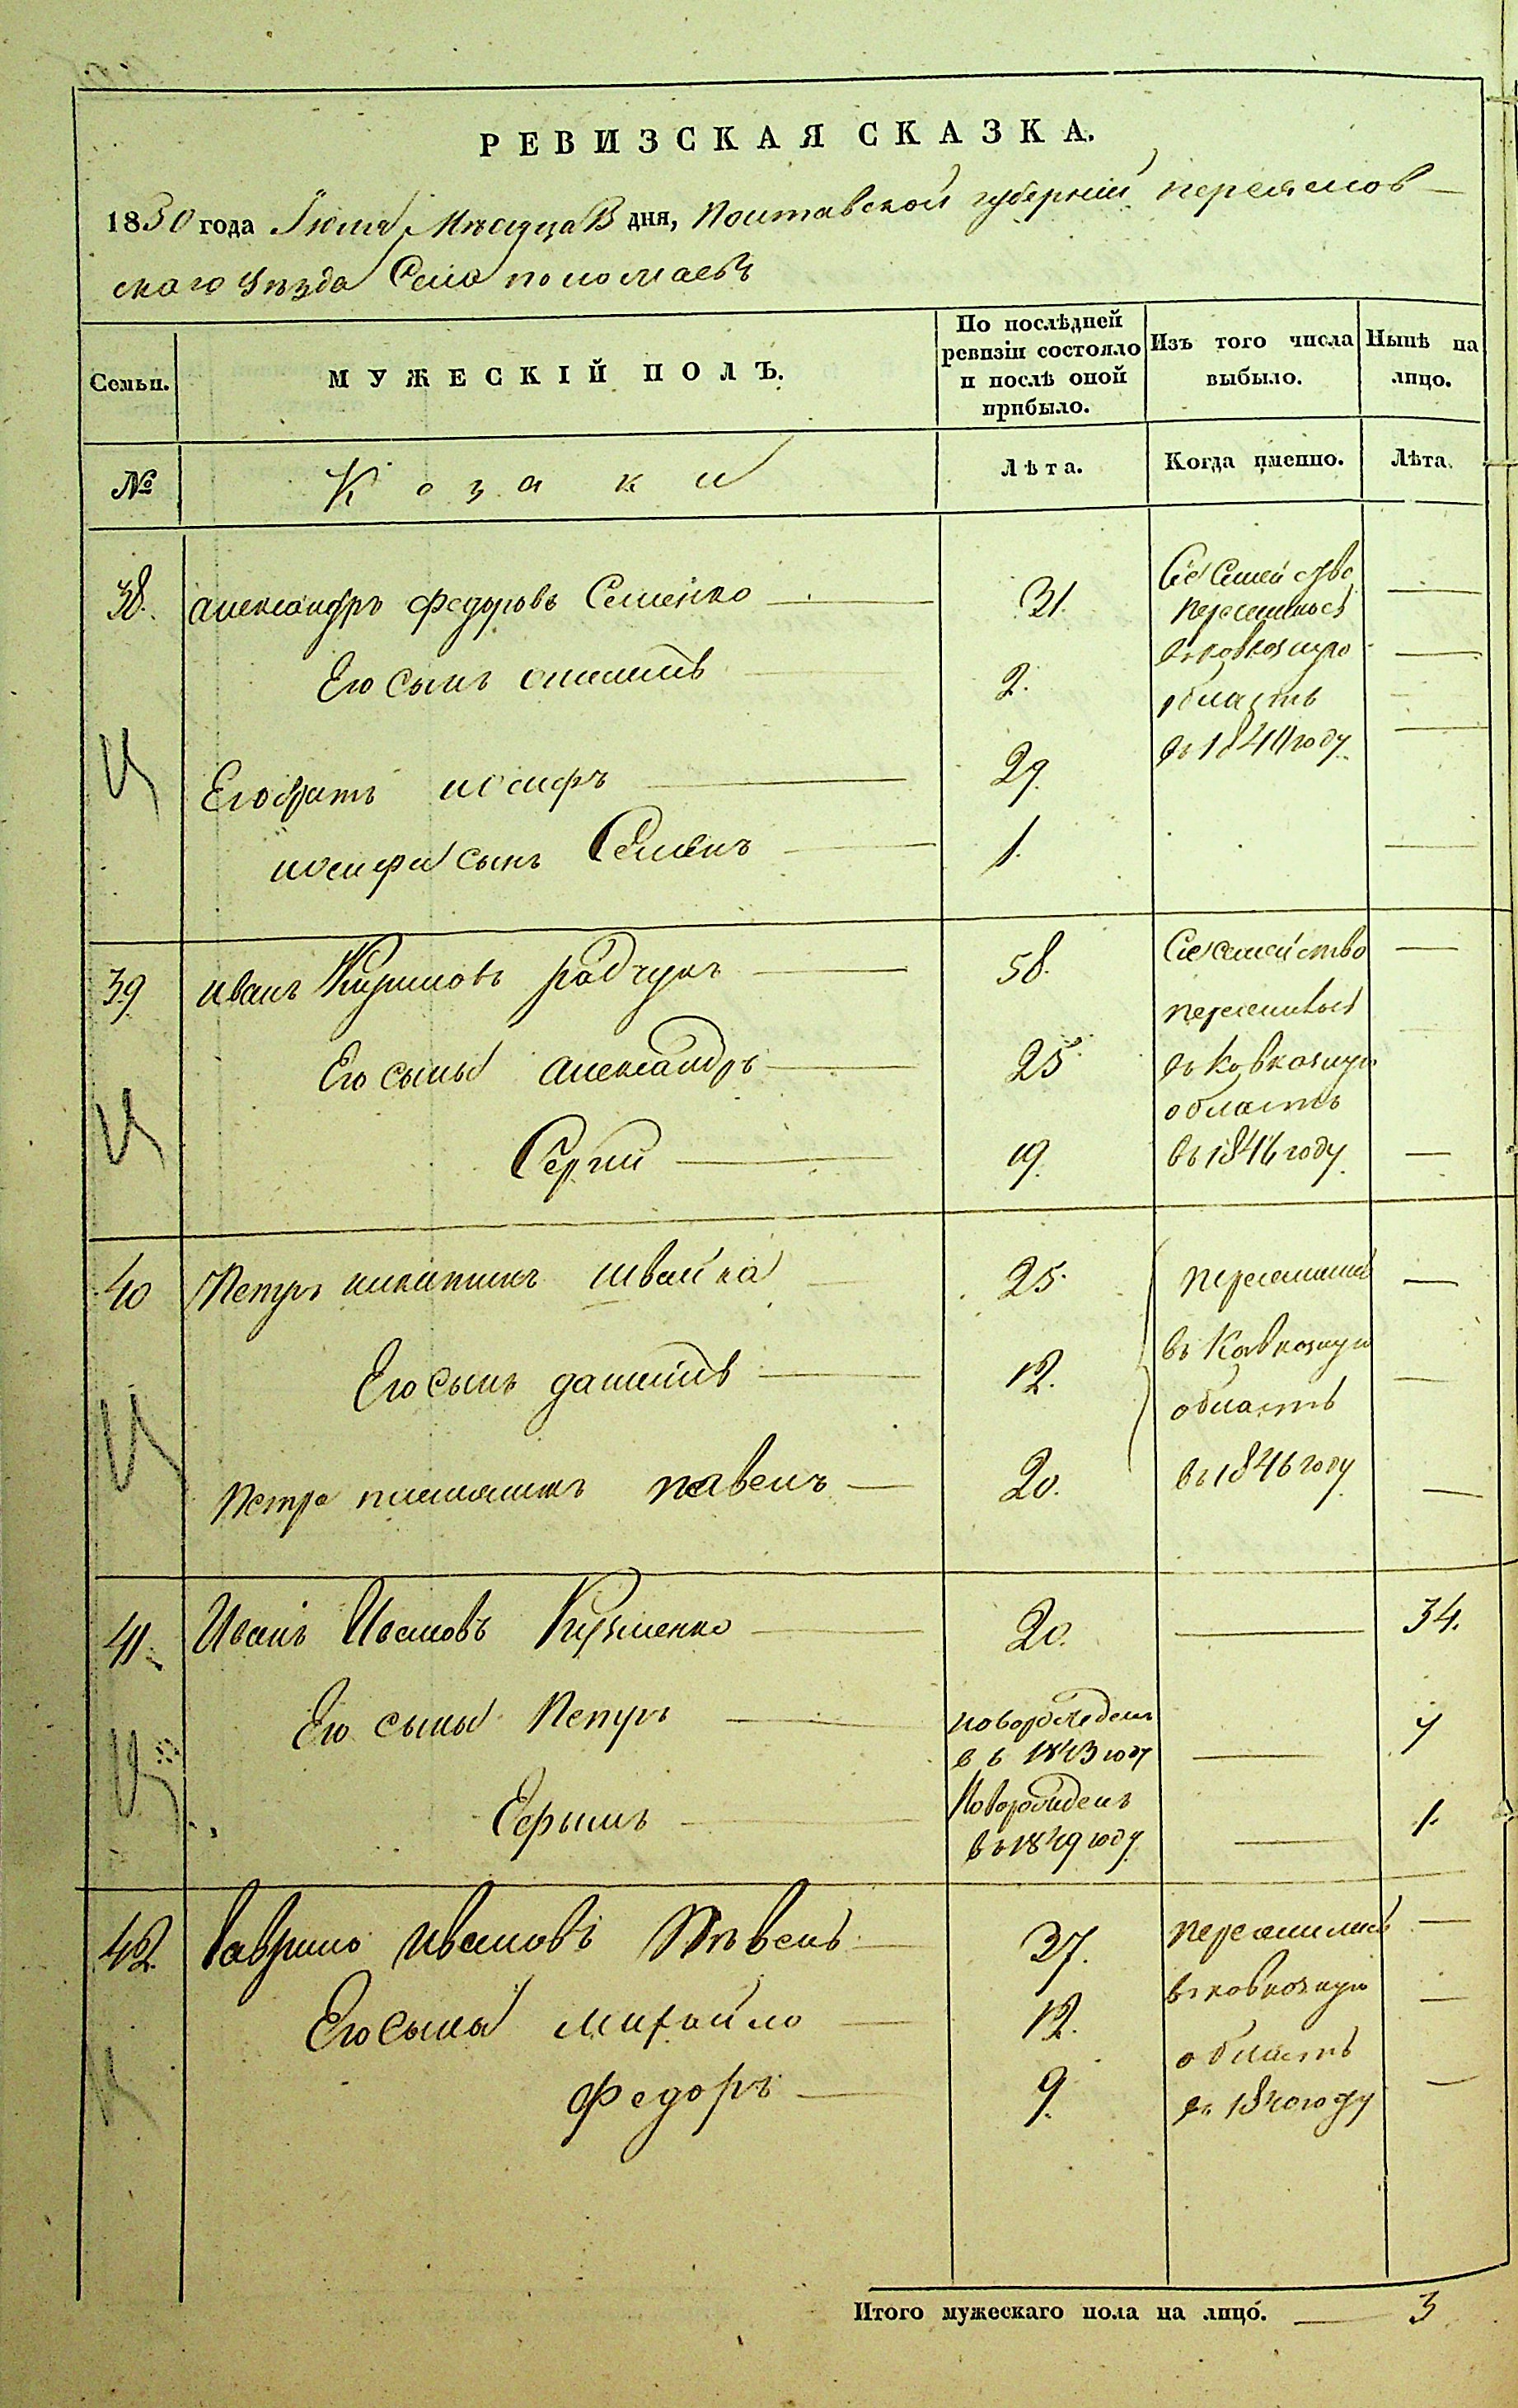 РЕВИЗСКАЯ СКАЗКА.
1850 года Іюля Мѣсяца дня, Полтавской губерніи переяслов
скаго уѣзда Села
Семьи.
МУЖЕСКІЙ ПОЛЪ.
По послѣдней ревизіи состояло и послѣ оной прибыло.
Изъ того числа выбыло.
Нынѣ на лицо.
№
Козаки
Лѣта.
Когда именно.
Лѣта.
38. александръ федоровъ Семенко 31.
Сіе Семейство
переселилось
въ кавказкую
область
въ 184 году
Его сынъ 2.
Его братъ иосифъ 29.
иосифа сынъ Семенъ 1.
39 иванъ Кириловъ радчукъ 58.
Сіе семейство
переселилось
въ Кавказкую
область
въ 1846 году
Его сыны александръ 25
Сергий 19.
40 Петръ никитинъ швайка 25.
переселились
въ Кавказкую
область
въ 1846 году
Его сынъ данило 12.
Петра племяникъ павелъ 20.
41. Иванъ Ивановъ Кузменко 20. 34.
Его сыны Петръ новорожденъ
въ 1843 году 7
Ефримъ Новорожденъ
въ 1849 году 1.
42 Гаврило Ивановъ Пѣвень 37.
переселились
въ кавказкую
область
въ 1840 году
Его сыны михайло 12.
федоръ 9.
Итого мужескаго пола на лицо. 3